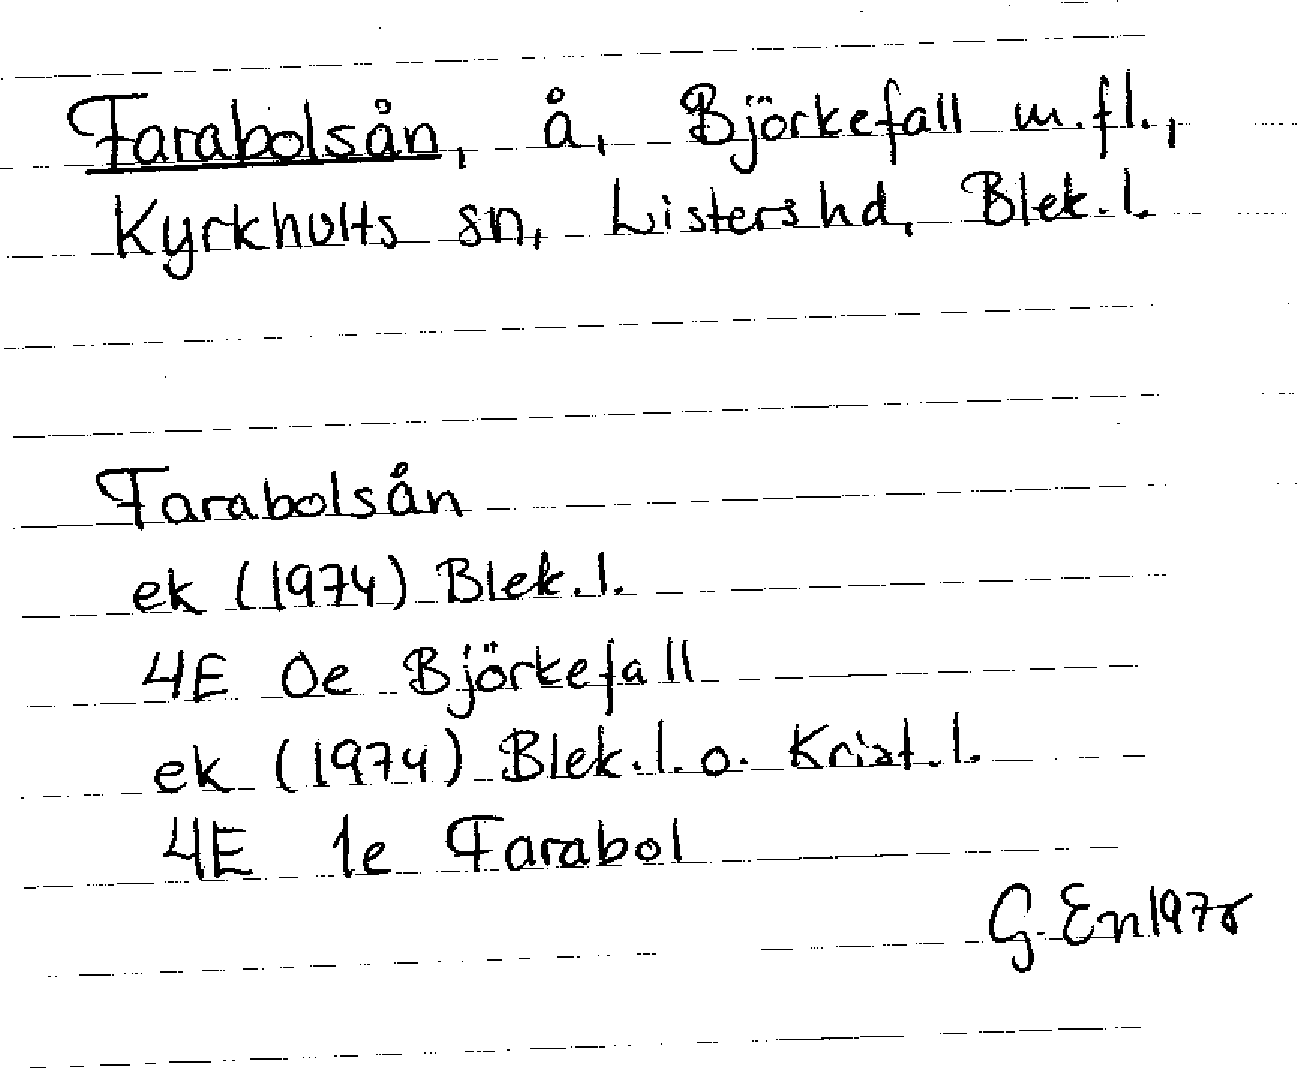 Farabolsån, å, Björkefall m.fl.,
Kyrkhults sn, Listers hd, Blek.l.
Farabolsån
ek (1974) Blek.l.
4E 0e Björkefall
ek (1974) Blek.l.o. Krist.l.
4E 1e Farabol
G. En